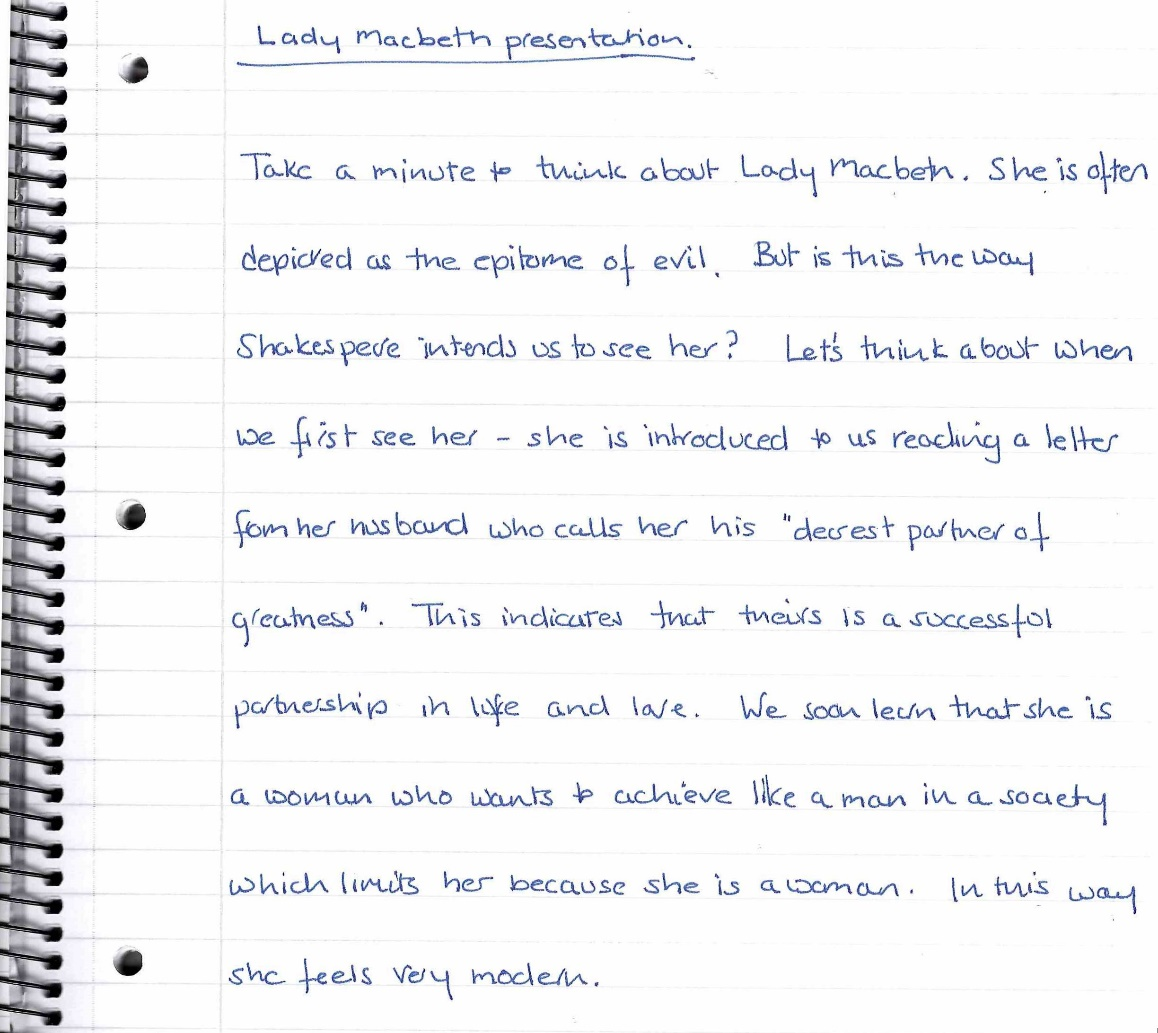 Lady Macbeth presentation.
Take a minute to think about Lady Macbeth. She is often
depicted as the epitome of evil. But is this the way
Shakespere intends us to see her? Let's think about when
we first see her - she is introduced to us reading a letter
fom her husband who calls her his "dearest partner of
greatness". This indicates that theirs is a successful
partnership in life and love. We soon learn that she is
a woman who wants to achieve like a man in a society
which limits her because she is a woman. In this way
she feels very modern.